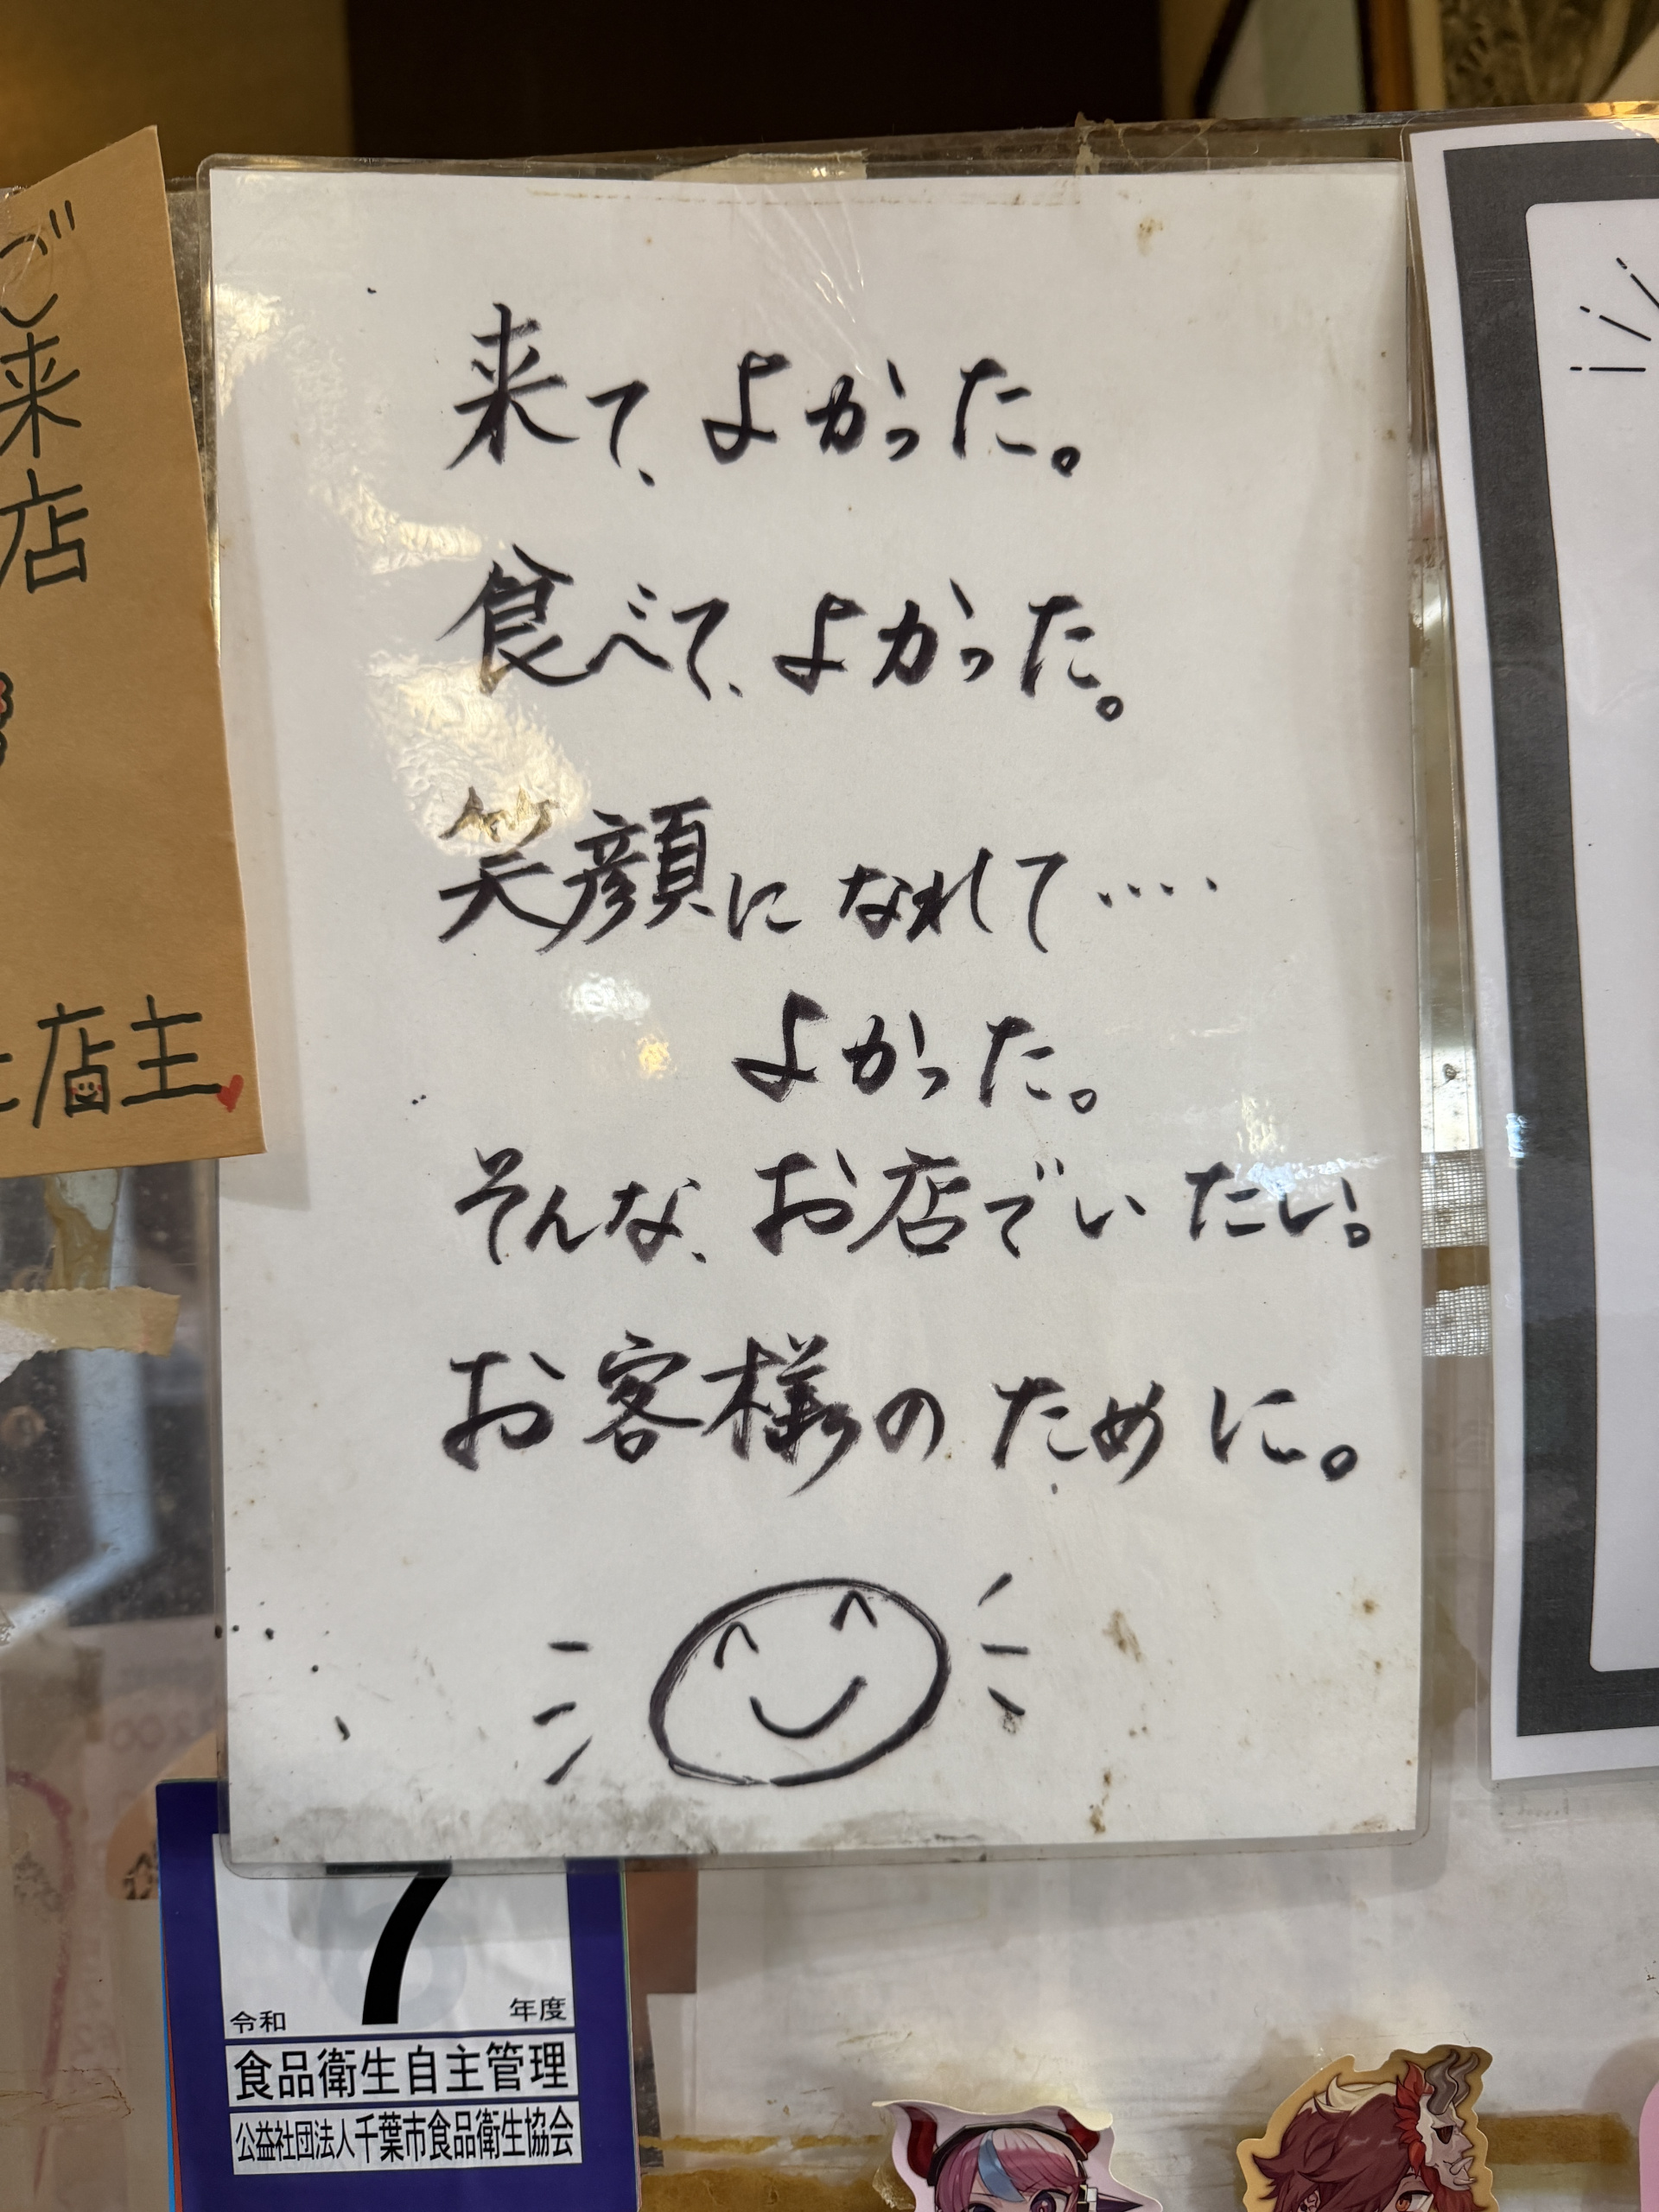 来て、よかった。
食べて、よかった。
笑顔になれて‥‥
よかった。
そんな、お店でいたい。
お客様のために。
ご来店
店主
7
令和 年度
食品衛生自主管理
公益社団法人千葉市食品衛生協会